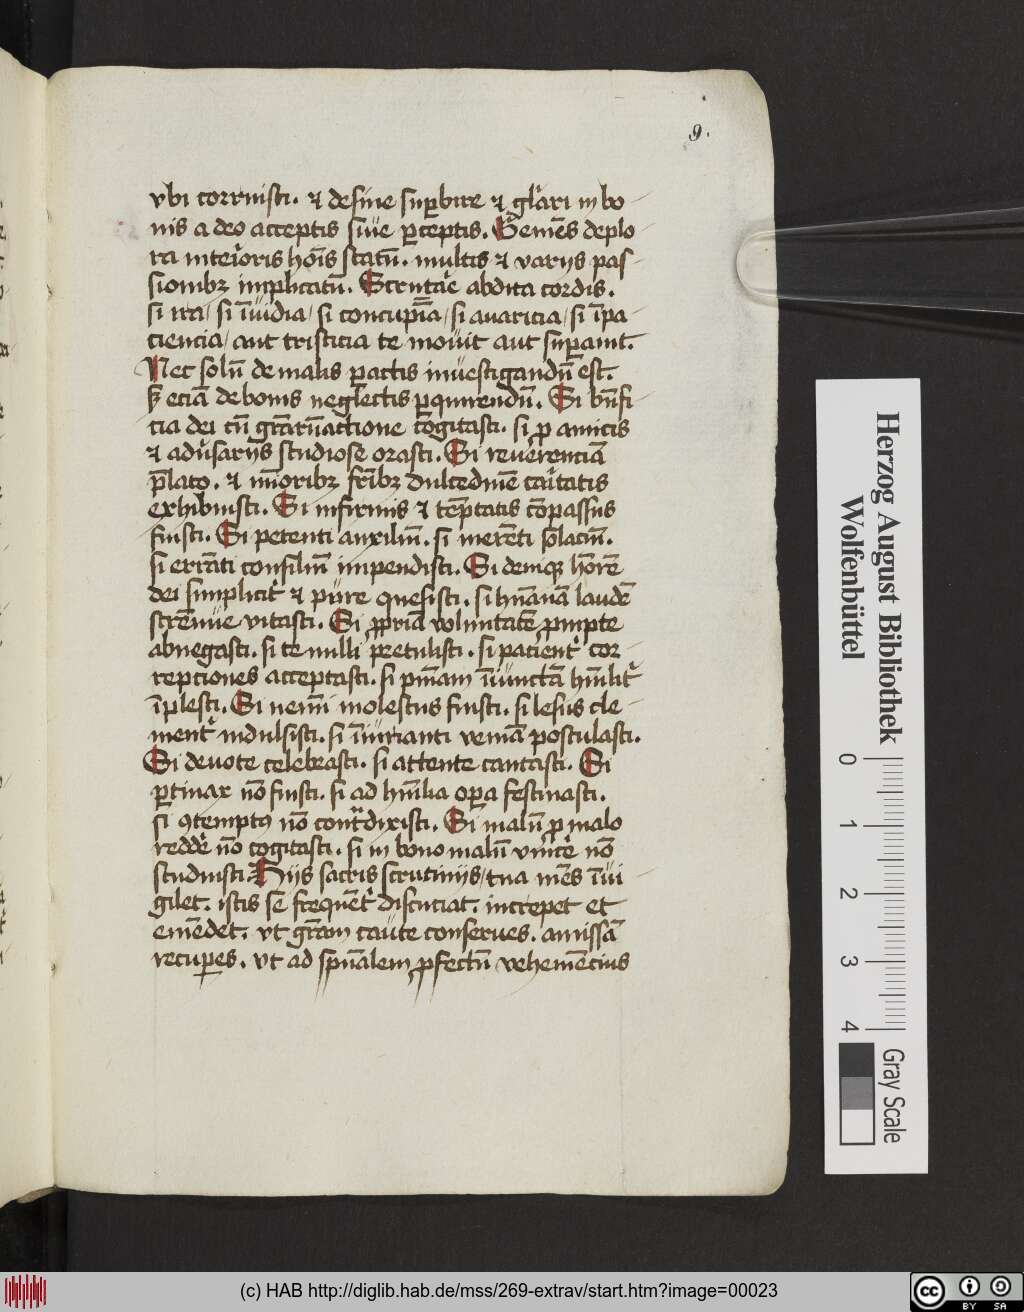 9.
vbi corruisti. & desine sup̄bire & gl̄ari in bo-
nis a deo acceptis siue p̄ceptis. Gemēs deplo-
ra interioris hoīs statū. multis & varijs pas-
sionibꝫ implicatū. Scrutāe abdita cordis.
si ira / si īuidia / si concupīa / si auaricia / si īpa-
ciencia / aut tristicia te mouit aut sup̄auit.
Nec solū de malis p̄actis inuestigandū est.
sꝫ eciā de bonis neglectis p̄quirendū. Si bn̄fi
cia dei cū gr̄arūactione cogitasti. si ꝓ amicis
& adūsarijs studiose orasti. Si reuerenciā
p̄lato. & mīoribꝫ fr̄ibꝫ dulcedinē cāitatis
exhibuisti. Si infirmis & tēptatis cōpassus
fuisti. Si petenti auxiliū. si merēti solaciū.
si errāti consiliū impendisti. Si deniqꝫ honorē
dei simplicit̄ & pure quesisti. si hūanā laudē
strēnue vitasti. Si ꝓpriā voluntatē ꝓmpte
abnegasti. si te nulli p̄etulisti. si pacient̄ cor-
repciones acceptasti. si pn̄iam īiunctā hūilit̄
īplesti. Si nemī molestus fuisti. si lesus cle-
ment̄ indulsisti. si īiurianti veniā postulasti.
Si deuote celebrasti. si attente cantasti. Si
p̄tinax nō fuisti. si ad hūilia op̄a festinasti.
si ꝯtemptꝰ nō cont̄dixisti. Si malū ꝓ malo
reddē nō cogitasti. si in bono malū vincē nō
studuisti. Hijs sacris scrutinijs / tua mēs īui
gilet. istis se frequēt̄ discuciat. increpet et
emēdet. vt gr̄am caute conserues. amissā
recup̄es. vt ad sp̄ualem ꝓfectū vehemēcius
Herzog August Bibliothek
Wolfenbüttel
0 1 2 3 4
Gray Scale
(c) HAB http://diglib.hab.de/mss/269-extrav/start.htm?image=00023
cc BY SA